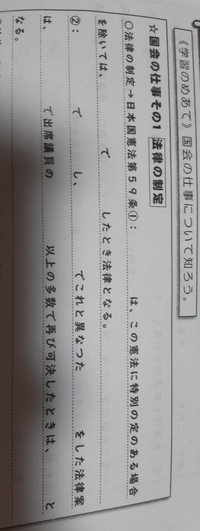 《学習のめあて》国会の仕事について知ろう。
☆国会の仕事その1 法律の制定
○法律の制定→日本国憲法第59条①： は、この憲法に特別の定のある場合
を除いては、 で したとき法律となる。
②： で し、 でこれと異なった をした法律案
は、 で出席議員の 以上の多数で再び可決したときは、 と
なる。